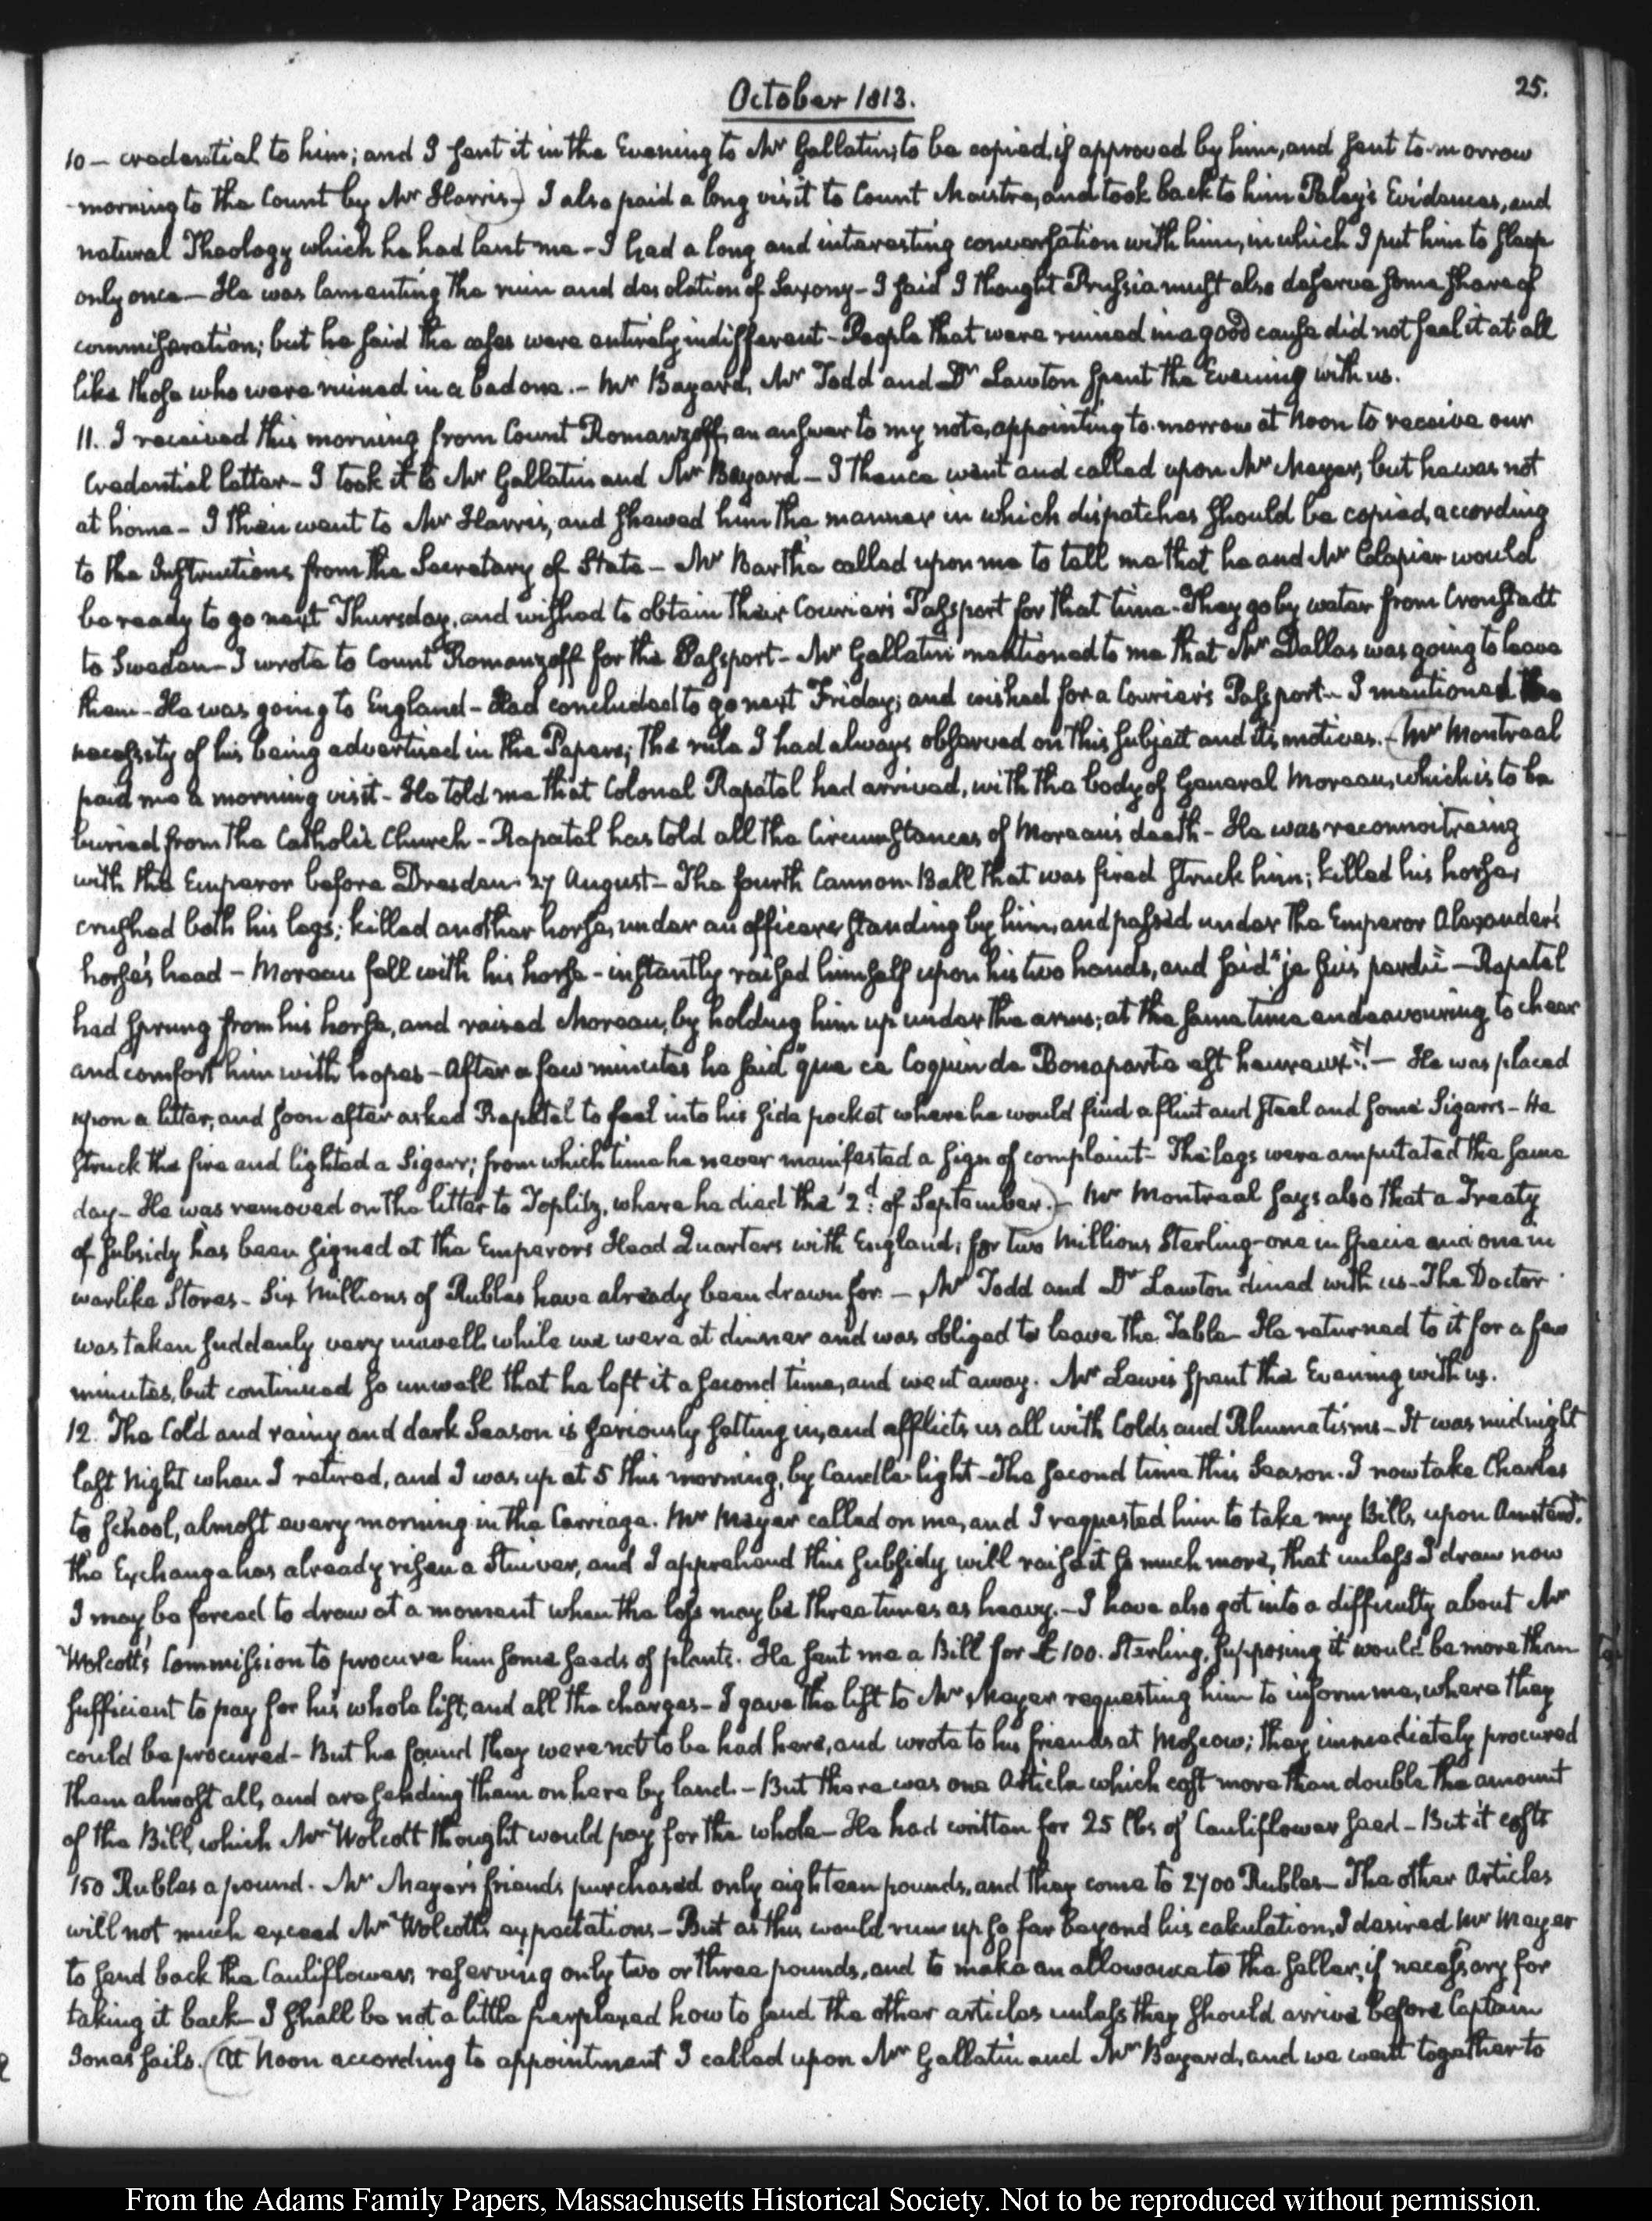 October 1813.
25.
10 — credential to him; and I sent it in the Evening to Mr Gallatin, to be copied, if approved by him, and sent to-morrow
morning to the Count by Mr Harris.) I also paid a long visit to Count Maistre, and took back to him Paley's Evidences, and
natural Theology which he had lent me – I had a long and interesting conversation with him, in which I put him to sleep
only once — He was lamenting the ruin and desolation of Saxony – I said I thought Prussia must also deserve some share of
commiseration; but he said the cases were entirely indifferent – People that were ruined in a good cause did not feel it at all
like those who were ruined in a bad one. – Mr Bayard, Mr Todd and Dr Lawton spent the Evening with us.
11. I received this morning from Count Romanzoff, an answer to my note, appointing to-morrow at Noon to receive our
Credential letter – I took it to Mr Gallatin and Mr Bayard – I thence went and called upon Mr Meyer, but he was not
at home – I then went to Mr Harris, and shewed him the manner in which dispatches should be copied, according
to the Instructions from the Secretary of State – Mr Barthe called upon me to tell me that he and Mr Colapier would
be ready to go next Thursday, and wished to obtain their Courier's Passport for that time. They go by water from Cronstadt
to Sweden – I wrote to Count Romanzoff for the Passport – Mr Gallatin mentioned to me that Mr Dallas was going to leave
them – He was going to England – Had concluded to go next Friday; and wished for a Courier's Passport – I mentioned the
necessity of his being advertised in the Papers; The rule I had always observed on this subject and its motives. – (Mr Montreal
paid me a morning visit – He told me that Colonel Rapatel had arrived, with the body of General Moreau, which is to be
buried from the Catholic Church – Rapatel has told all the Circumstances of Moreau's death – He was reconnoitreing
with the Emperor before Dresden 27 August – The fourth Cannon Ball that was fired struck him; killed his horse,
crushed both his legs; killed another horse, under an officer standing by him, and passed under the Emperor Alexander's
horse's head – Moreau fell with his horse – instantly raised himself upon his two hands, and said "je suis perdu" — Rapatel
had sprung from his horse, and raised Moreau, by holding him up under the arms; at the same time endeavouring to chear
and comfort him with hopes – After a few minutes he said "que ce Coquin de Bonaparte est heureux"! — He was placed
upon a litter, and soon after asked Rapatel to feel into his side pocket where he would find a flint and steel and some Sigarrs – He
struck the fire and lighted a Sigarr; from which time he never manifested a sign of complaint – The legs were amputated the same
day – He was removed on the litter to Toplitz, where he died the 2d of September.) – Mr Montreal says also that a Treaty
of subsidy has been signed at the Emperor's Head Quarters with England; for two Millions Sterling – one in specie and one in
warlike Stores – Six Millions of Rubles have already been drawn for. — Mr Todd and Dr Lawton dined with us – The Doctor
was taken suddenly very unwell while we were at dinner and was obliged to leave the Table – He returned to it for a few
minutes, but continued so unwell that he left it a second time, and went away. Mr Lewis spent the Evening with us.
12. The Cold and rainy and dark Season is seriously setting in, and afflicts us all with Colds and Rhumatisms – It was midnight
last Night when I retired, and I was up at 5 this morning, by Candle-light – The second time this Season. I now take Charles
to school, almost every morning in the Carriage. Mr Meyer called on me, and I requested him to take my Bills upon Amsterd.
the Exchange has already risen a Stuiver, and I apprehend this subsidy will raise it so much more, that unless I draw now
I may be forced to draw at a moment when the loss may be three times as heavy. – I have also got into a difficulty about Mr
Wolcott's Commission to procure him some seeds of plants. He sent me a Bill for £100. Sterling, supposing it would be more than
sufficient to pay for his whole list, and all the charges – I gave the list to Mr Meyer requesting him to inform me, where they
could be procured – But he found they were not to be had here, and wrote to his friends at Moscow; they immediately procured
them almost all, and are sending them on here by land. – But there was one Article which cost more than double the amount
of the Bill, which Mr Wolcott thought would pay for the whole – He had written for 25 lbs of Cauliflower seed – But it costs
150 Rubles a pound. Mr Meyer's friends purchased only eighteen pounds, and they come to 2700 Rubles – The other Articles
will not much exceed Mr Wolcott's expectations – But as this would run up so far beyond his calculation, I desired Mr Meyer
to send back the Cauliflower, reserving only two or three pounds, and to make an allowance to the seller, if necessary for
taking it back – I shall be not a little perplexed how to send the other articles unless they should arrive before Captain
Jones sails. (At Noon according to appointment I called upon Mr Gallatin and Mr Bayard, and we went together to
From the Adams Family Papers, Massachusetts Historical Society. Not to be reproduced without permission.